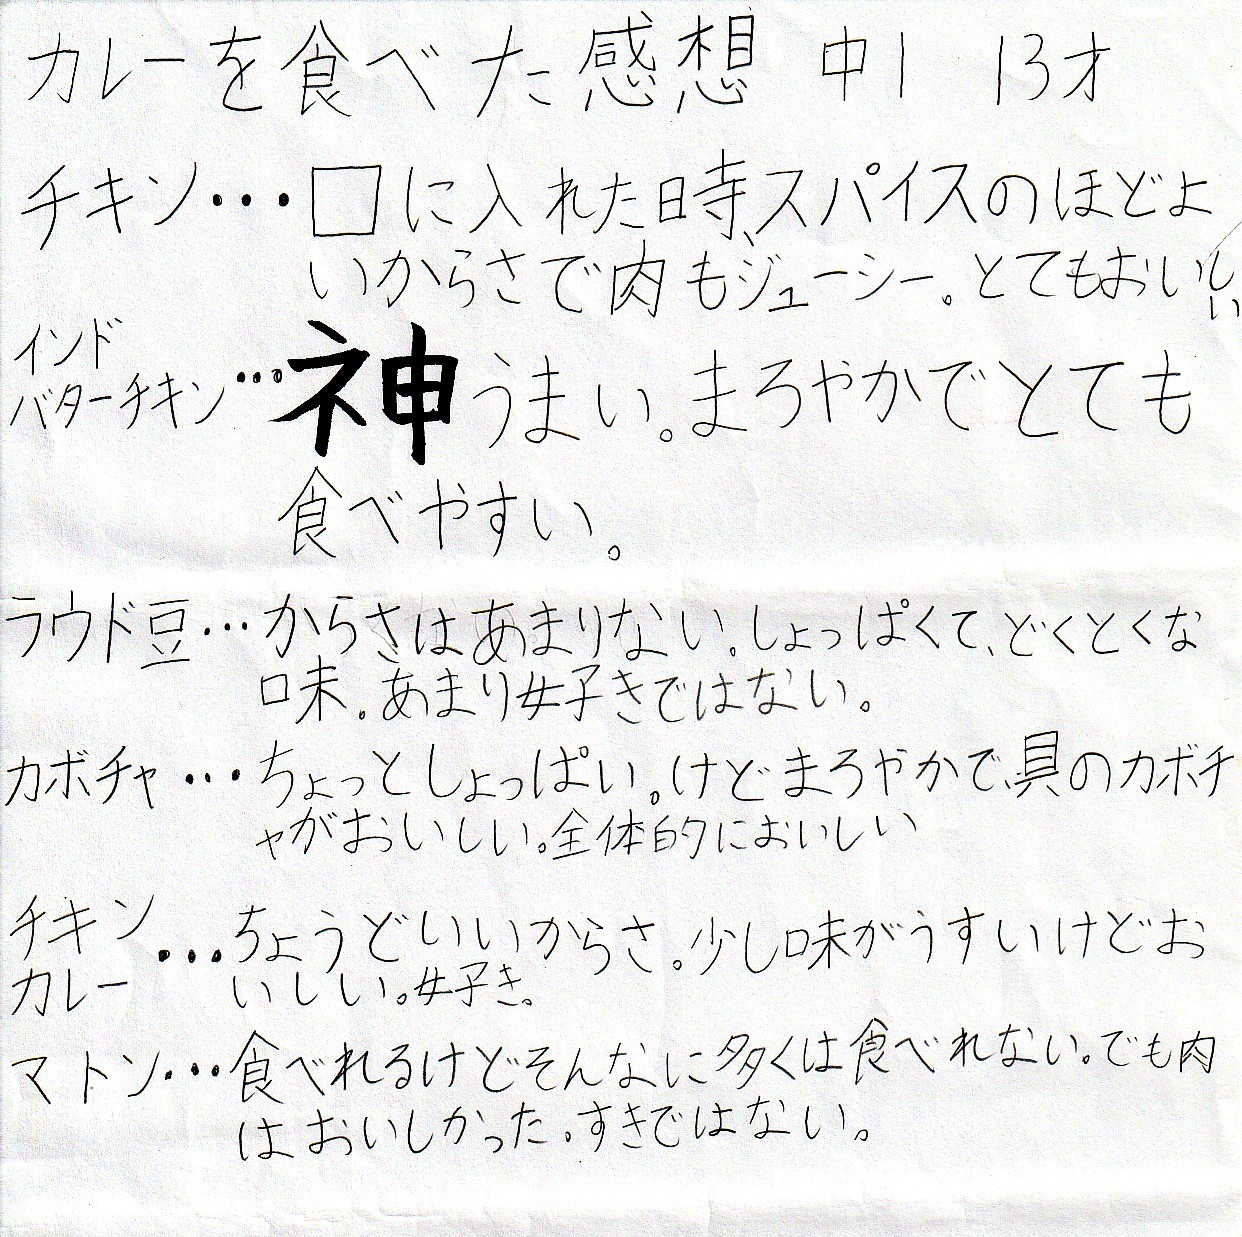 カレーを食べた感想 中1 13才
チキン…口に入れた時、スパイスのほどよ
いからさで肉もジューシー。とてもおいしい
インド
バターチキン…神うまい。まろやかでとても
食べやすい。
ラウド豆…からさはあまりない。しょっぱくて、どくとくな
味。あまり好きではない。
カボチャ…ちょっとしょっぱい。けどまろやかで、具のカボチ
ャがおいしい。全体的においしい
チキン
カレー…ちょうどいいからさ。少し味がうすいけどお
いしい。好き。
マトン…食べれるけどそんなに多くは食べれない。でも肉
はおいしかった。すきではない。